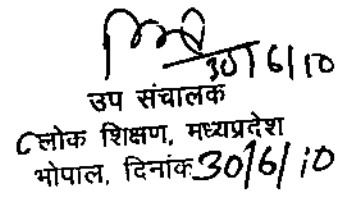 30/6/10
उप संचालक
लोक शिक्षण, मध्यप्रदेश
भोपाल, दिनांक 30/6/10